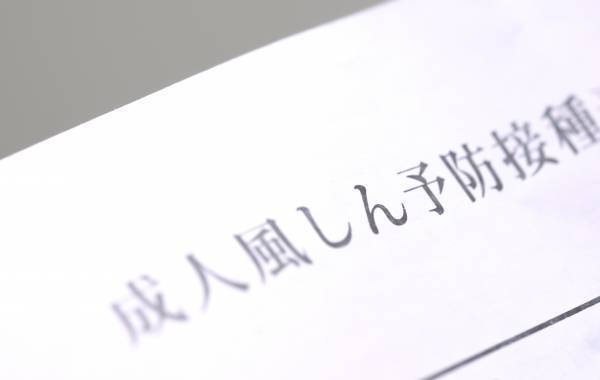 成人風しん予防接種